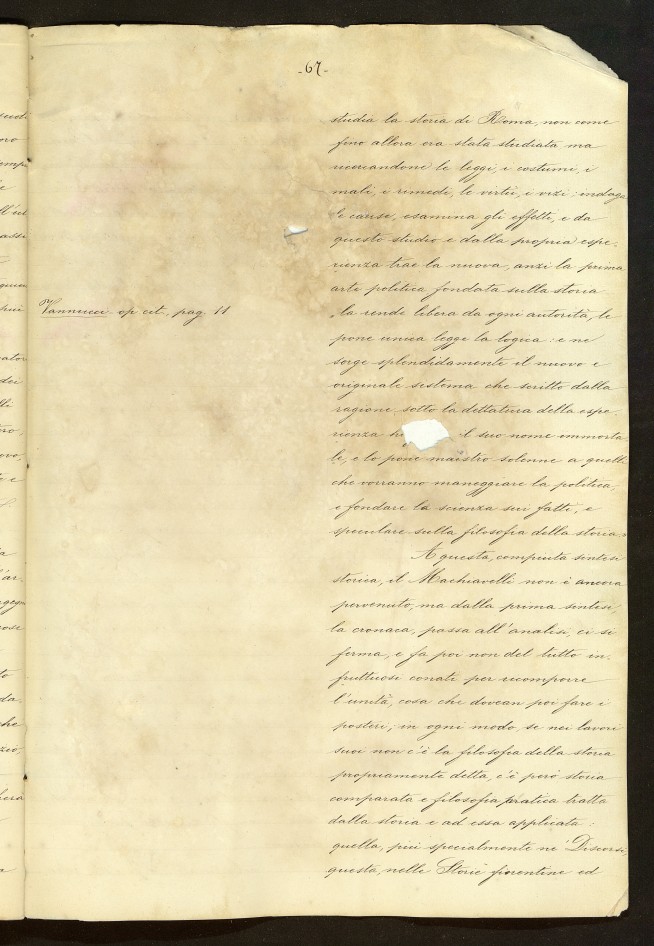 -67-
studia la storia di Roma, non come
fino allora era stata studiata ma
ricercandone le leggi, i costumi, i
mali, i rimedi, le virtù, i vizi: indaga
le cause, esamina gli effetti, e da
questo studio e dalla propria espe-
rienza trae la nuova, anzi la prima
arte politica fondata sulla storia
Vannucci op. cit. pag. 11
"la rende libera da ogni autorità, le
pone unica legge la logica: e ne
sorge splendidamente il nuovo e
originale sistema che scritto dalla
ragione sotto la dettatura della espe-
rienza il suo nome immorta-
le, e lo pone maestro solenne a quelli
che vorranno maneggiare la politica,
e fondare la scienza sui fatti, e
speculare sulla filosofia della storia"
A questa, compiuta sintesi
storica, il Machiavelli non è ancora
pervenuto, ma dalla prima sintesi,
la cronaca, passa all'analisi, ci si
ferma, e fa poi non del tutto in-
fruttuosi conati per ricomporre
l'unità, cosa che dovean poi fare i
posteri; in ogni modo, se nei lavori
suoi non c'è la filosofia della storia
propriamente detta, c'è però storia
comparata e filosofia pratica tratta
dalla storia e ad essa applicata:
quella, più specialmente ne' Discorsi,
questa, nelle Storie fiorentine ed